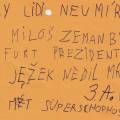 Y LIDI NEUMÍR
MILOŠ ZEMAN BY
FURT PREZIDENT
JEŽEK NEDIL MA
MĚT SUPERSCHOPNOS
3.A.